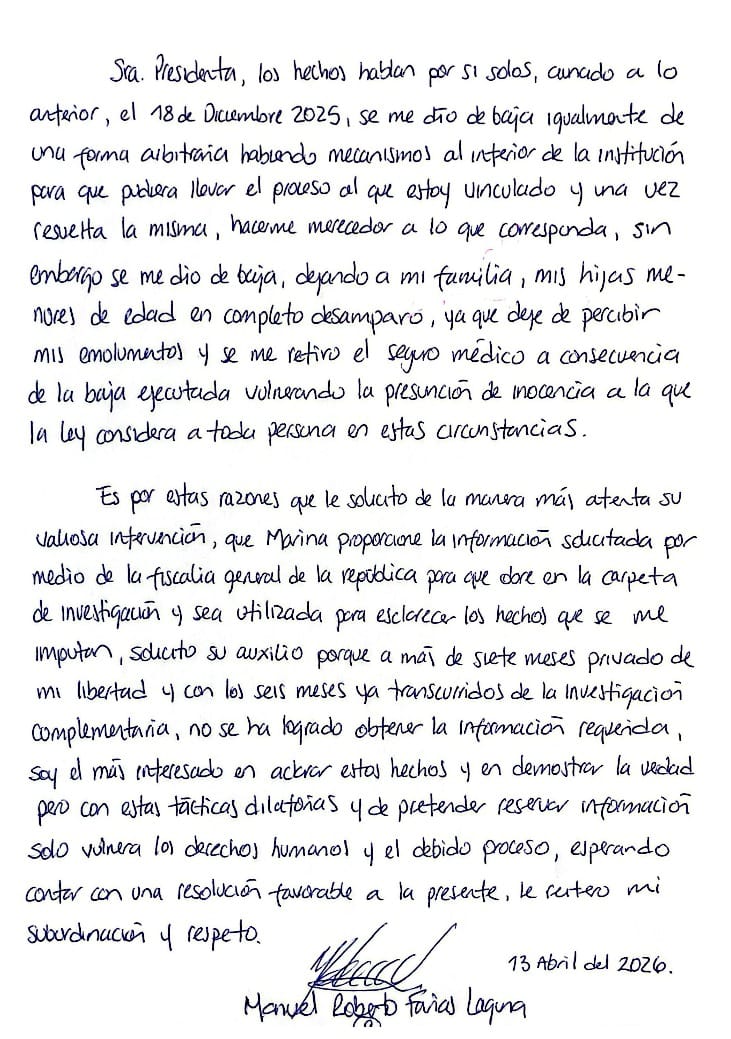 Sra. Presidenta, los hechos hablan por si solos, aunado a lo
anterior, el 18 de Diciembre 2025, se me dio de baja igualmente de
una forma arbitraria habiendo mecanismos al interior de la institución
para que pudiera llevar el proceso al que estoy vinculado y una vez
resuelta la misma, hacerme merecedor a lo que corresponda, sin
embargo se me dio de baja, dejando a mi familia, mis hijas me-
nores de edad en completo desamparo, ya que deje de percibir
mis emolumentos y se me retiro el seguro médico a consecuencia
de la baja ejecutada vulnerando la presunción de inocencia a la que
la ley considera a toda persona en estas circunstancias.
Es por estas razones que le solicito de la manera más atenta su
valiosa intervención, que Marina proporcione la información solicitada por
medio de la fiscalia general de la república para que obre en la carpeta
de investigación y sea utilizada para esclarecer los hechos que se me
imputan, solicito su auxilio porque a más de siete meses privado de
mi libertad y con los seis meses ya transcurridos de la investigación
complementaria, no se ha logrado obtener la información requerida,
soy el más interesado en aclarar estos hechos y en demostrar la verdad
pero con estas tácticas dilatorias y de pretender reservar información
solo vulnera los derechos humanos y el debido proceso, esperando
contar con una resolución favorable a la presente, le reitero mi
subordinación y respeto.
13 Abril del 2026.
Manuel Roberto Farias Laguna